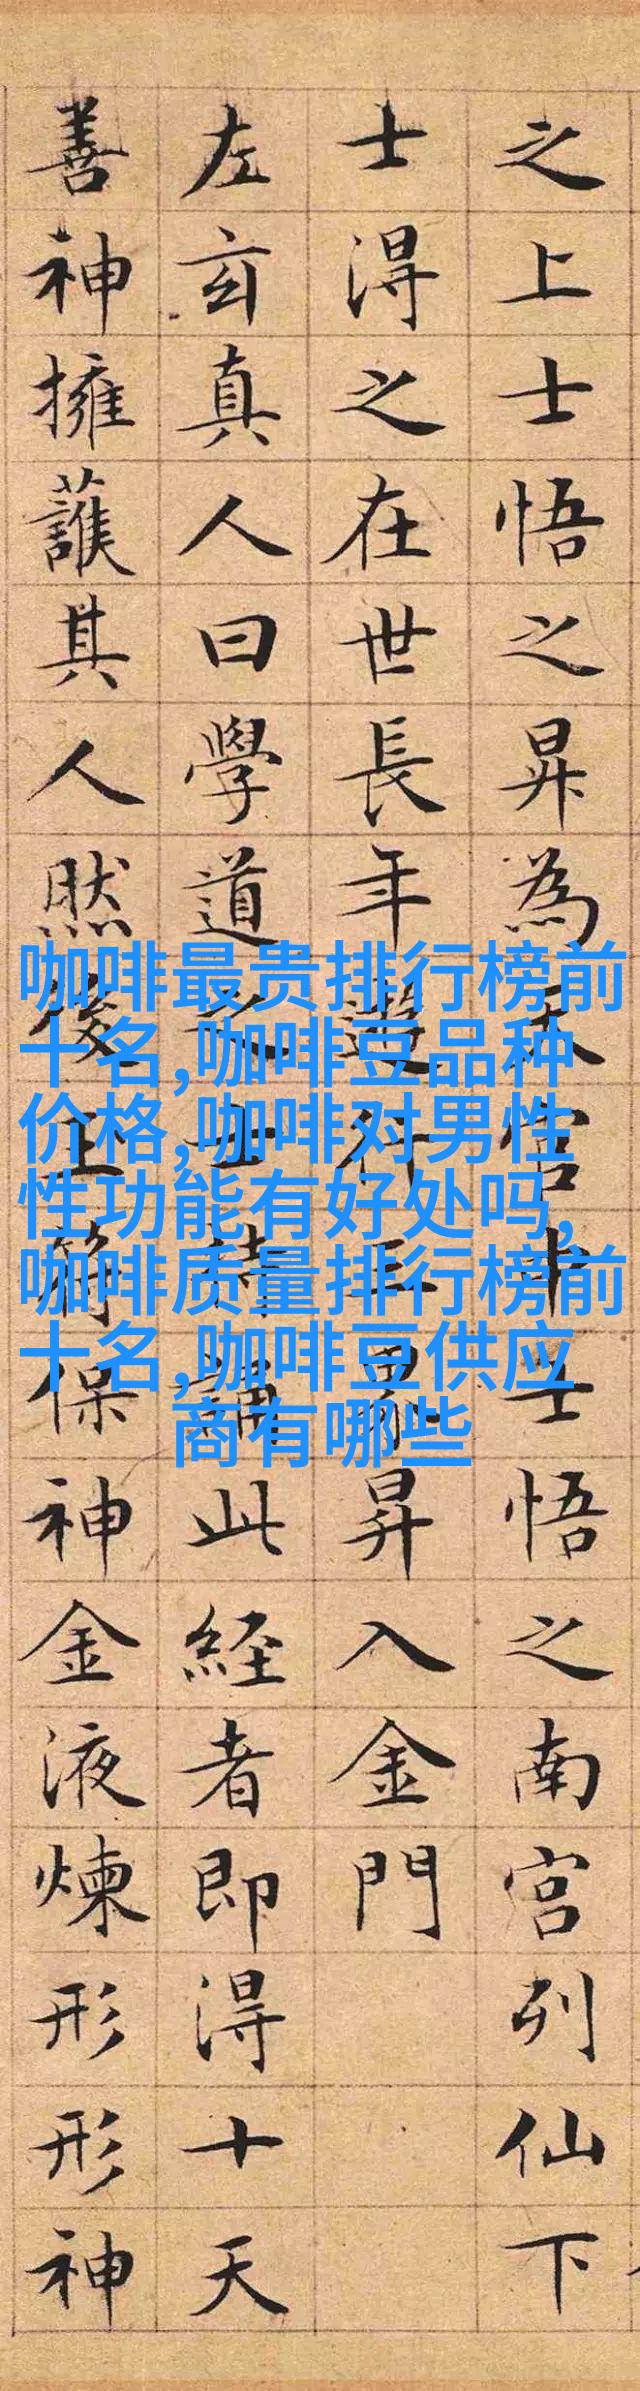 之上士悟之昇為天官中士悟之南宮列仙下
士得之在世長年遊行三界昇入金門
左玄真人曰學道之士持誦此経者即得十天
善神擁護其人然後玉符保神金液煉形形神
咖啡最贵排行榜前
十名,咖啡豆品种
价格,咖啡对男性
性功能有好处吗,
咖啡质量排行榜前
十名,咖啡豆供应
商有哪些